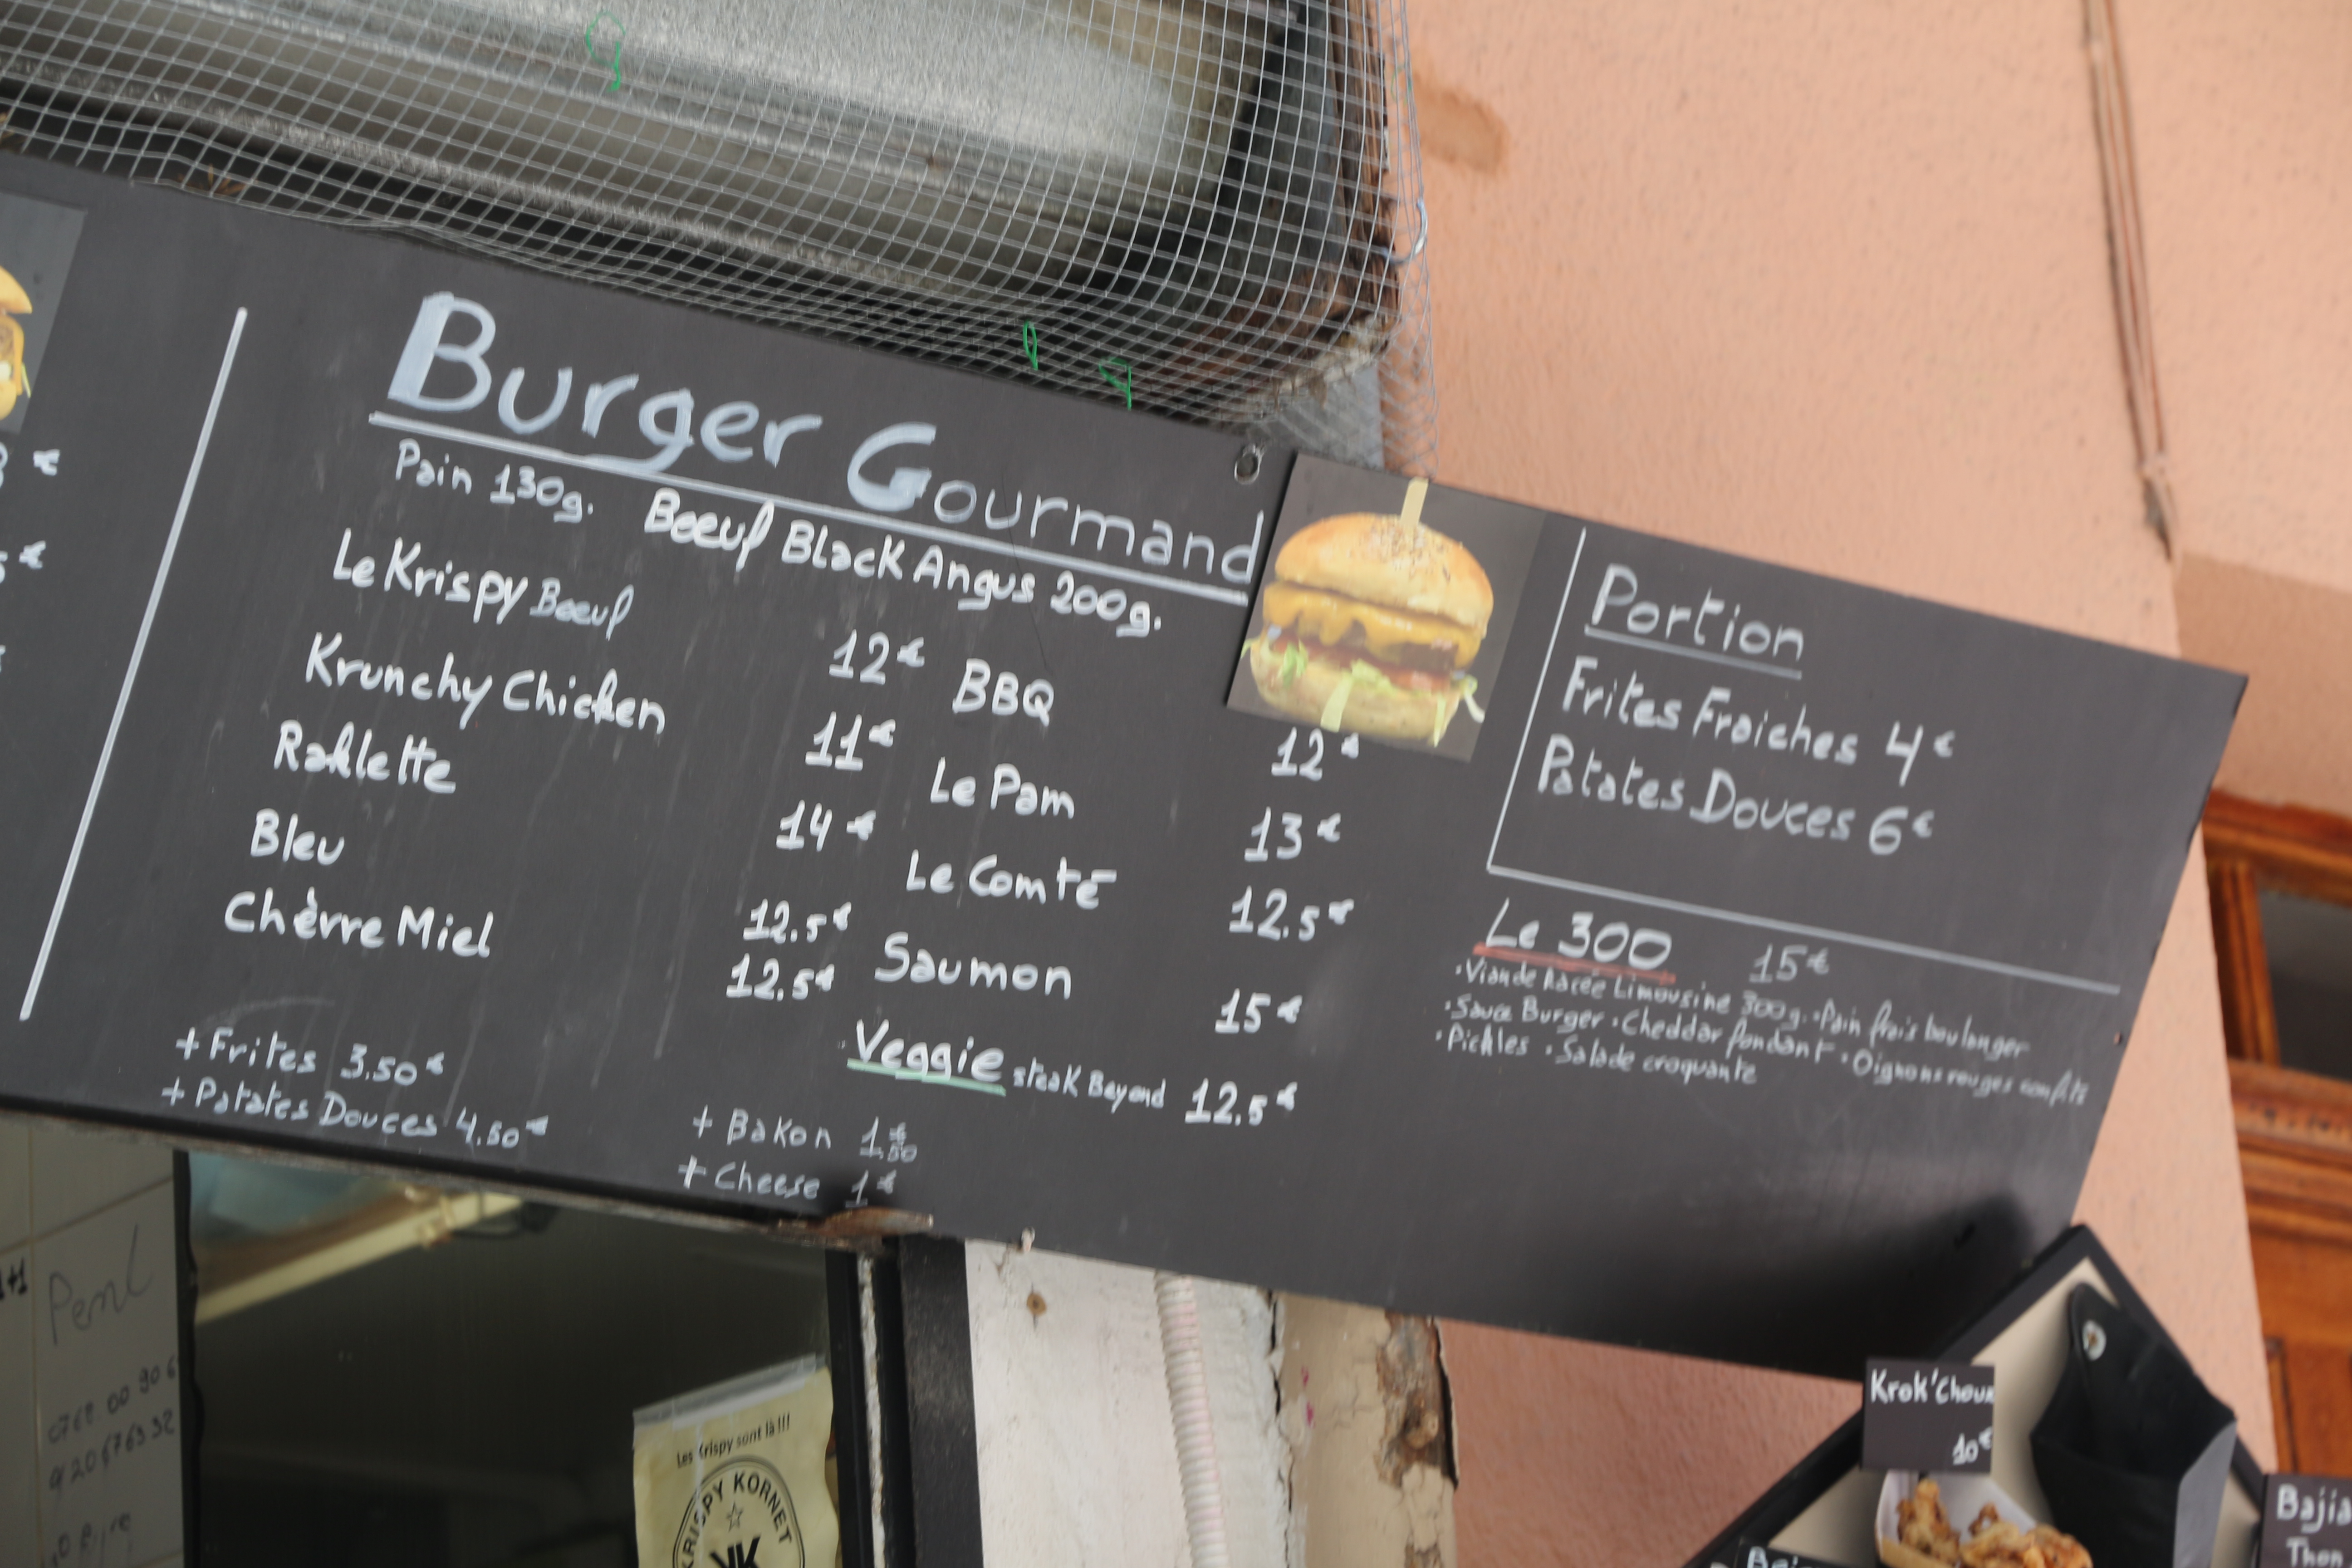 Burger Gourmand
Pain 130g. Boeuf Black Angus 200g.
Le Krispy Boeuf 12€
Krunchy Chicken 11€
Raklette 14€
Bleu 12.5€
Chèvre Miel 12.5€
+ Frites 3.50€
+ Patates Douces 4.50€
BBQ 12€
Le Pam 13€
Le Comté 12.5€
Saumon 15€
Veggie steak Beyond 12.5€
+ Bakon 1€50
+ Cheese 1€
Portion
Frites Fraiches 4€
Patates Douces 6€
Le 300 15€
· Viande Racée Limousine 300g. · Pain frais boulanger
· Sauce Burger · Cheddar fondant · Oignons rouges confits
· Pickles · Salade croquante
Les Krispy sont là!!!
KRISPY KORNET
Krok'Choux
10€
Bajia